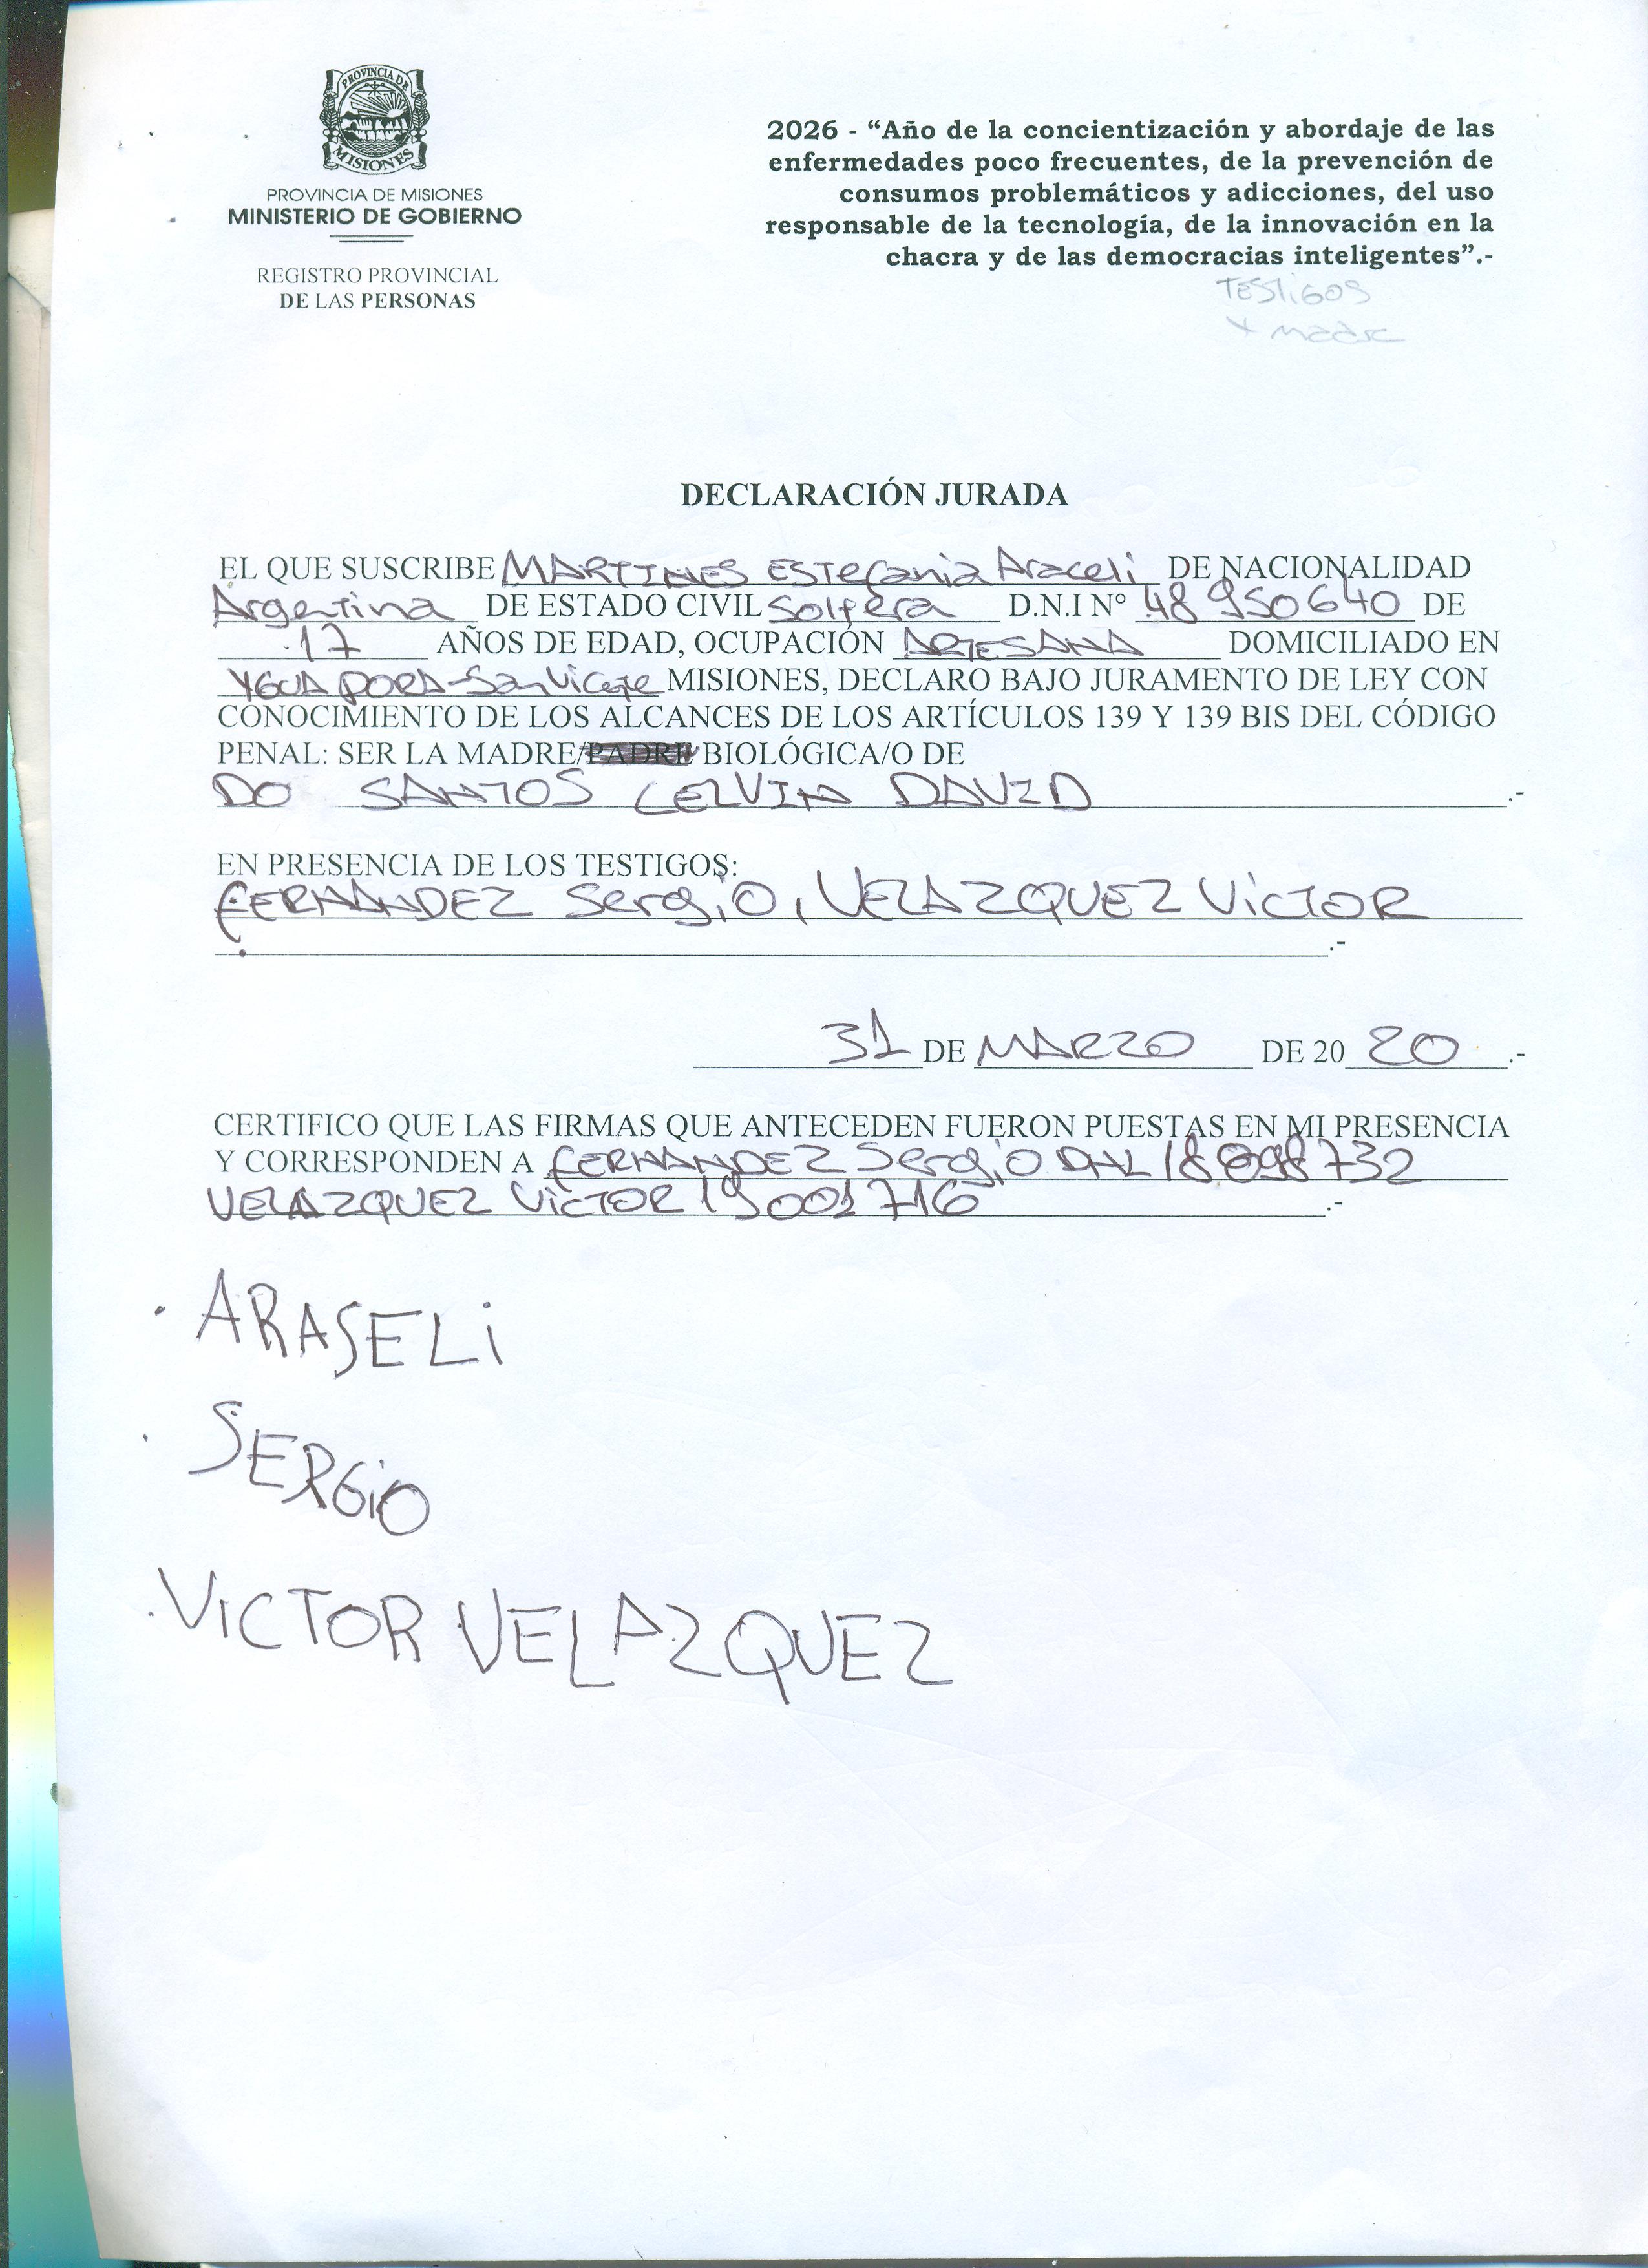 PROVINCIA DE
MISIONES
PROVINCIA DE MISIONES
MINISTERIO DE GOBIERNO
REGISTRO PROVINCIAL
DE LAS PERSONAS
2026 - “Año de la concientización y abordaje de las
enfermedades poco frecuentes, de la prevención de
consumos problemáticos y adicciones, del uso
responsable de la tecnología, de la innovación en la
chacra y de las democracias inteligentes”.-
TESTIGOS
x madre
DECLARACIÓN JURADA
EL QUE SUSCRIBE MARTINES ESTefania Araceli DE NACIONALIDAD
Argentina DE ESTADO CIVIL Soltera D.N.I N° 48950640 DE
17 AÑOS DE EDAD, OCUPACIÓN ARTESANA DOMICILIADO EN
YGUA PORA-San Vicente MISIONES, DECLARO BAJO JURAMENTO DE LEY CON
CONOCIMIENTO DE LOS ALCANCES DE LOS ARTÍCULOS 139 Y 139 BIS DEL CÓDIGO
PENAL: SER LA MADRE/PADRE BIOLÓGICA/O DE
DO SANTOS CELVIN DAVID .-
EN PRESENCIA DE LOS TESTIGOS:
FERNANDEZ Sergio, VELAZQUEZ VICTOR
.-
31 DE MARZO DE 20 20 .-
CERTIFICO QUE LAS FIRMAS QUE ANTECEDEN FUERON PUESTAS EN MI PRESENCIA
Y CORRESPONDEN A FERNANDEZ Sergio 18098732
VELAZQUEZ VICTOR 19001716 .-
ARASELi
SERGiO
ViCTOR VELAZQUEZ